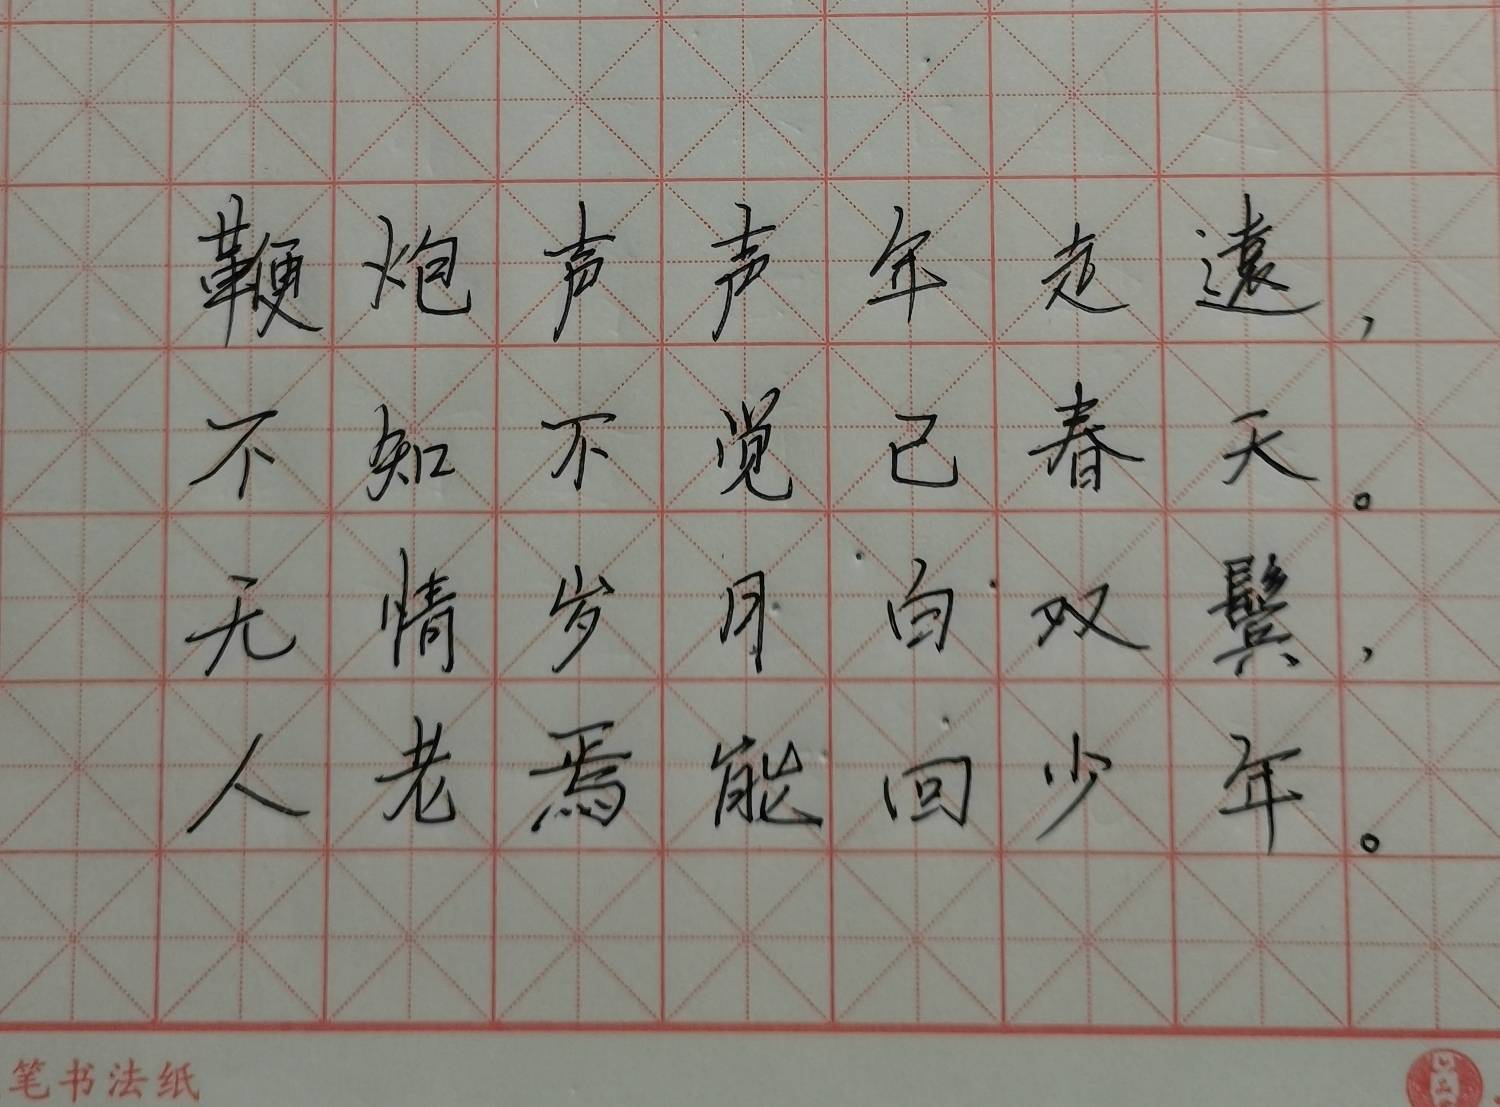 鞭炮声声年走遠，
不知不觉己春天。
无情岁月白双鬓，
人老焉能回少年。
笔书法纸